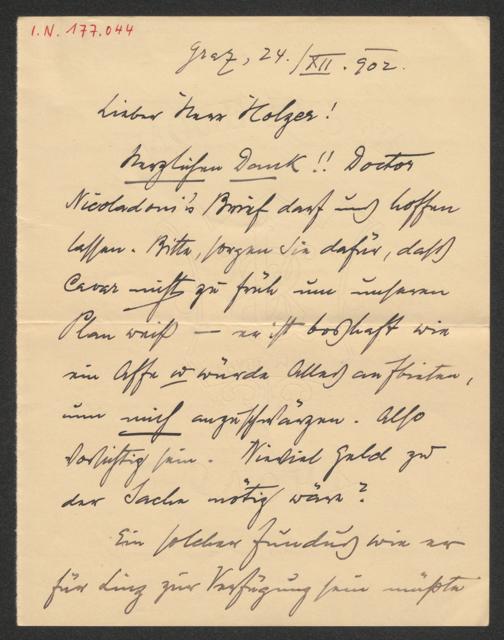 I.N. 177.044
Graz, 24./XII. 902.
Lieber Herr Holzer!
Herzlichen Dank!! Doctor
Nicoladoni's Brief darf uns hoffen
lassen. Bitte, sorgen Sie dafür, daß
Cavar nicht zu früh um unseren
Plan weiß — er ist boshaft wie
ein Affe u würde Alles aufbieten,
um mich anzuschwärzen. Also
vorsichtig sein. Wieviel Geld zu
der Sache nötig wäre?
Ein solcher Fundus wie er
für Linz zur Verfügung sein müßte